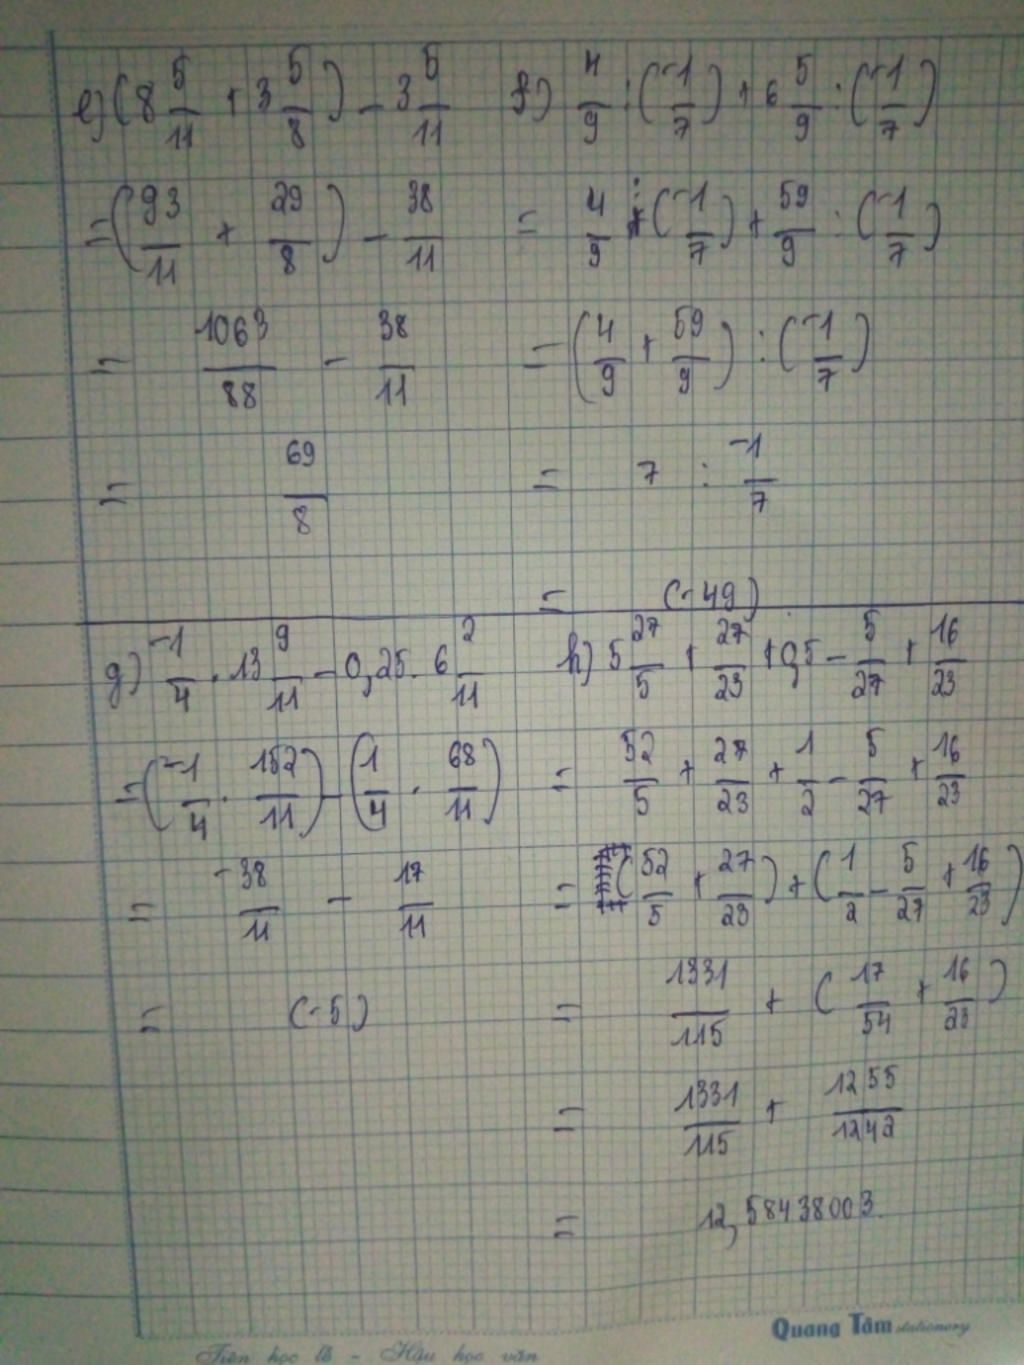 e) (8 5/11 + 3 5/8) - 3 5/11
= (93/11 + 29/8) - 38/11
= 1063/88 - 38/11
= 69/8
f) 4/9 : (-1/7) + 6 5/9 : (-1/7)
= 4/9 : (-1/7) + 59/9 : (-1/7)
= (4/9 + 59/9) : (-1/7)
= 7 : -1/7
= (-49)
g) -1/4 . 13 9/11 - 0,25 . 6 2/11
= (-1/4 . 152/11) - (1/4 . 68/11)
= -38/11 - 17/11
= (-5)
h) 5 27/5 + 27/23 + 0,5 - 5/27 + 16/23
= 52/5 + 27/23 + 1/2 - 5/27 + 16/23
= (52/5 + 27/23) + (1/2 - 5/27 + 16/23)
= 1331/115 + (17/54 + 16/23)
= 1331/115 + 1255/1242
= 12,58438003.
Quang Tâm stationery
Tiên học lễ - Hậu học văn